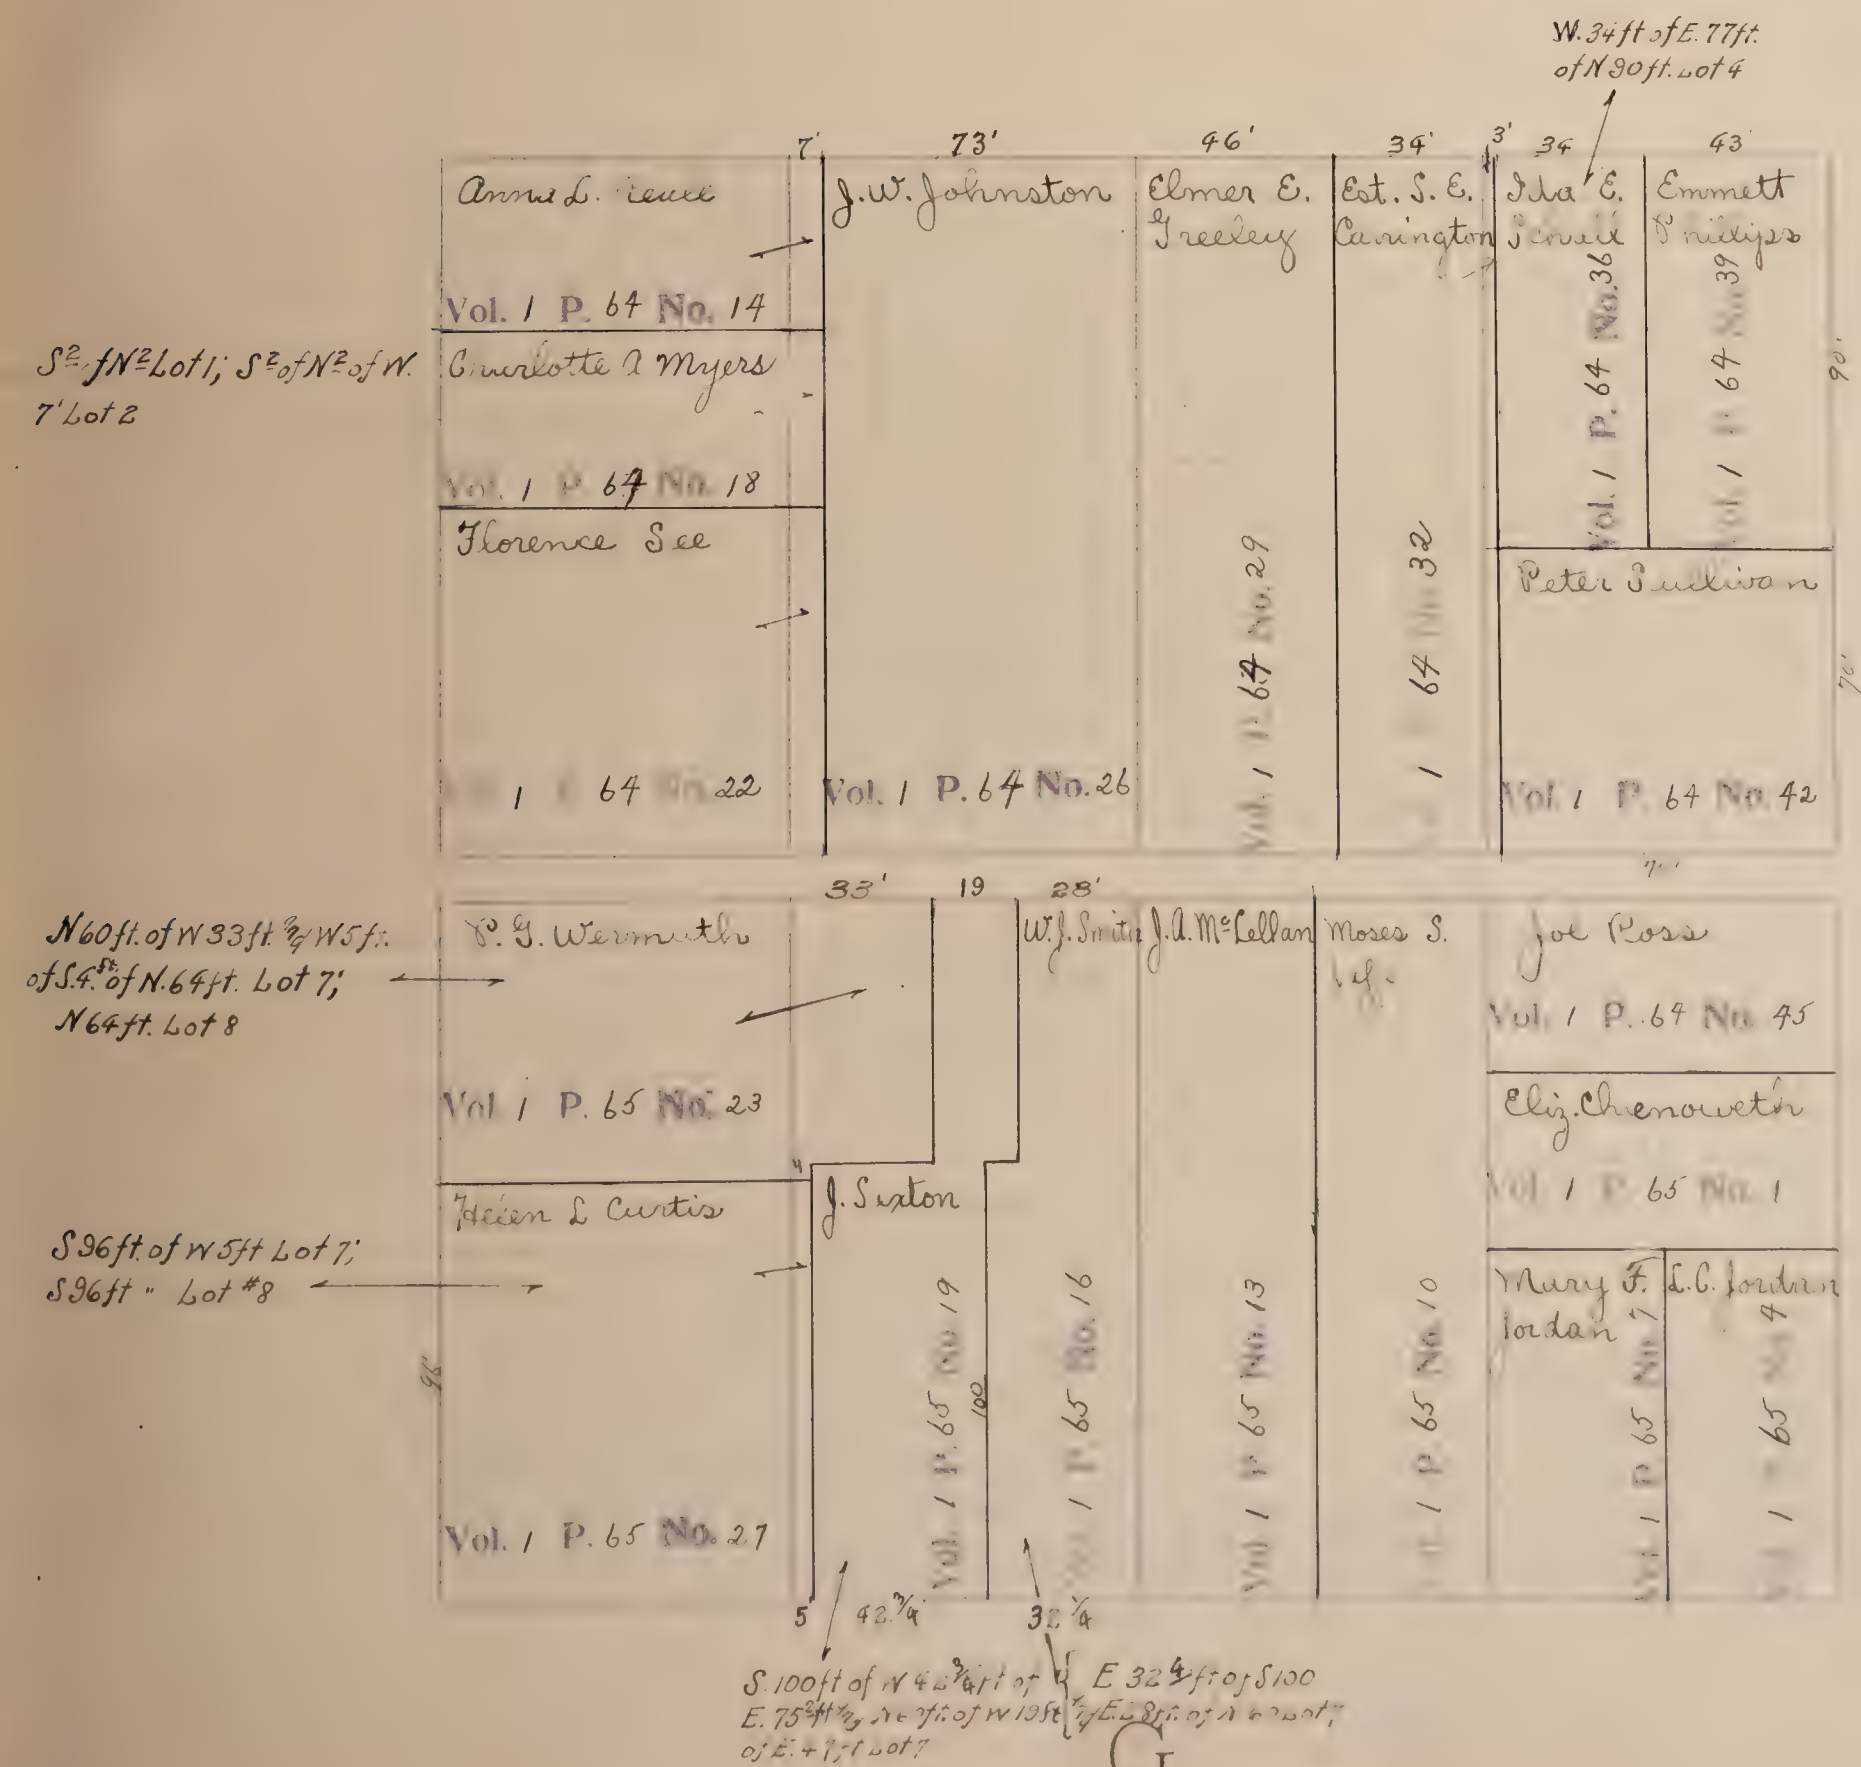 W. 34 ft of E. 77 ft.
of N 90 ft. Lot 4
7' 73' 46' 34' 3' 34 43
Anna L.
Vol. 1 P. 64 No. 14
S 2 of N 2 Lot 1; S 2 of N 2 of W.
7' Lot 2
Charlotte A Myers
Vol. 1 P. 64 No. 18
Florence See
1 64 No. 22
J. W. Johnston
Vol. 1 P. 64 No. 26
Elmer E.
Greeley
Vol. 1 P. 64 No. 29
Est. S. E.
Carington
1 64 No. 32
Ida E.
Vol. 1 P. 64 No. 36
Emmett
Phillips
Vol. 1 P. 64 No. 39
90'
Peter Sullivan
Vol. 1 P. 64 No. 42
70'
33' 19 28'
N 60 ft. of W 33 ft. & W 5 ft.
of S. 4 ft. of N. 64 ft. Lot 7;
N 64 ft. Lot 8
P. G. Wermuth
Vol. 1 P. 65 No. 23
4
S 96 ft. of W 5 ft Lot 7;
S 96 ft " Lot #8
Helen L Curtis
96'
Vol. 1 P. 65 No. 27
J. Sexton
Vol. 1 P. 65 No. 19
100
W. J. Smith
1 P. 65 No. 16
J. A. McLellan
Vol. 1 P. 65 No. 13
Moses S.
1 P. 65 No. 10
Joe Ross
Vol. 1 P. 64 No. 45
Eliz. Chenoweth
Vol. 1 P. 65 No. 1
Mary F.
Jordan
Vol. 1 P. 65 No. 7
L. C. Jordan
Vol. 1 65 No. 4
5' 42 3/4 32 1/4
S. 100 ft of W 42 3/4 ft of E 32 1/4 ft of S 100
E. 75 ft & of W 19 ft & E. 28 ft. of Lot 7
of E. 47 ft Lot 7
G